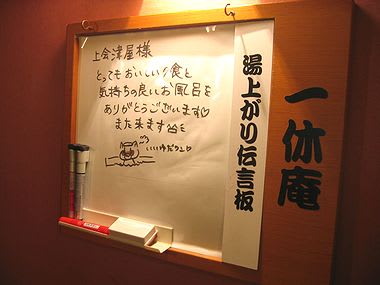 一休庵
湯上がり伝言板
上会津屋様
とってもおいしい夕食と
気持ちの良いお風呂を
ありがとうございます♡
また来ます
いい